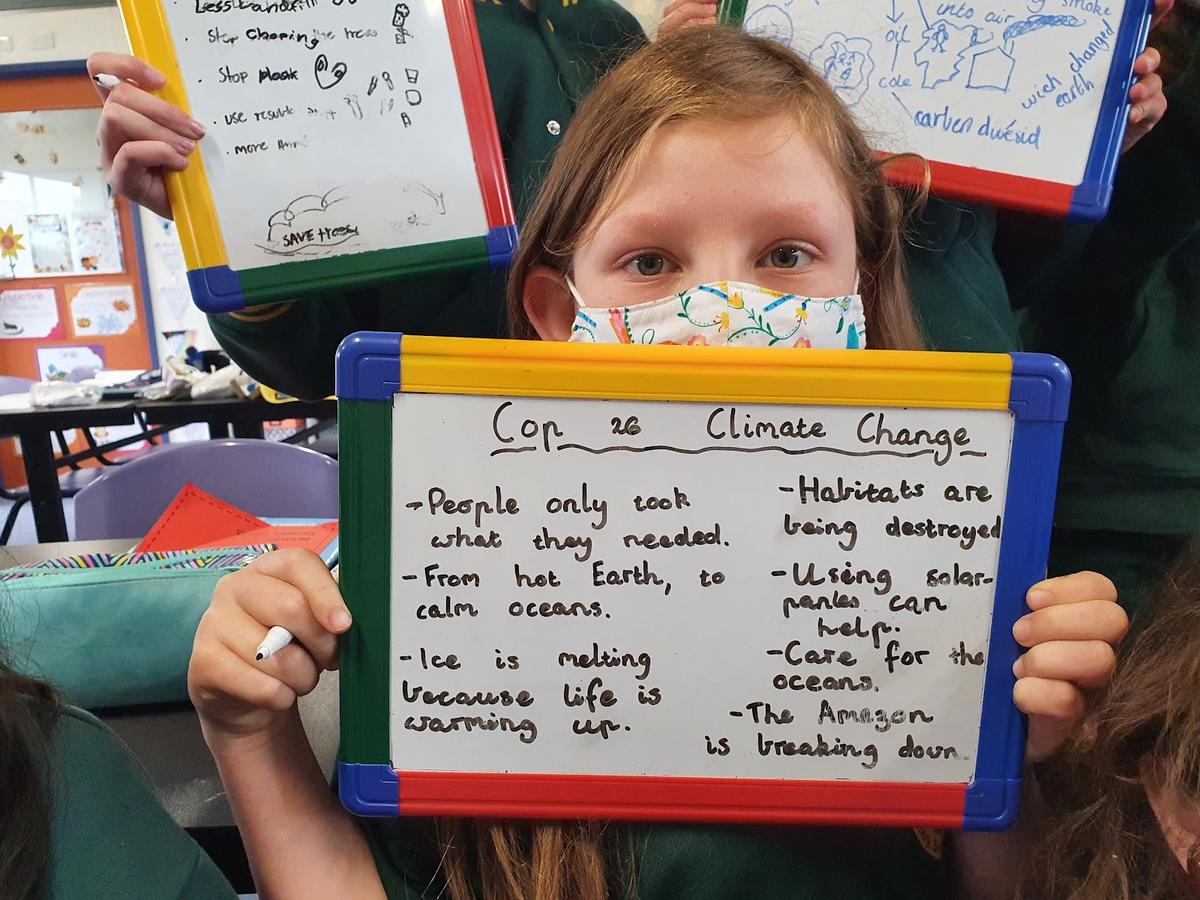 Less Landfill
Stop Chopping the trees
Stop
use
more
SAVE trees
smoke
into air
oil
cole
wich changed
earth
carben diwesid
Cop 26 Climate Change
-People only took
what they needed.
-From hot Earth, to
calm oceans.
-Ice is melting
because life is
warming up.
-Habitats are
being destroyed
-Using solar-
panles can
help.
-Care for the
oceans.
-The Amazon
is breaking down.